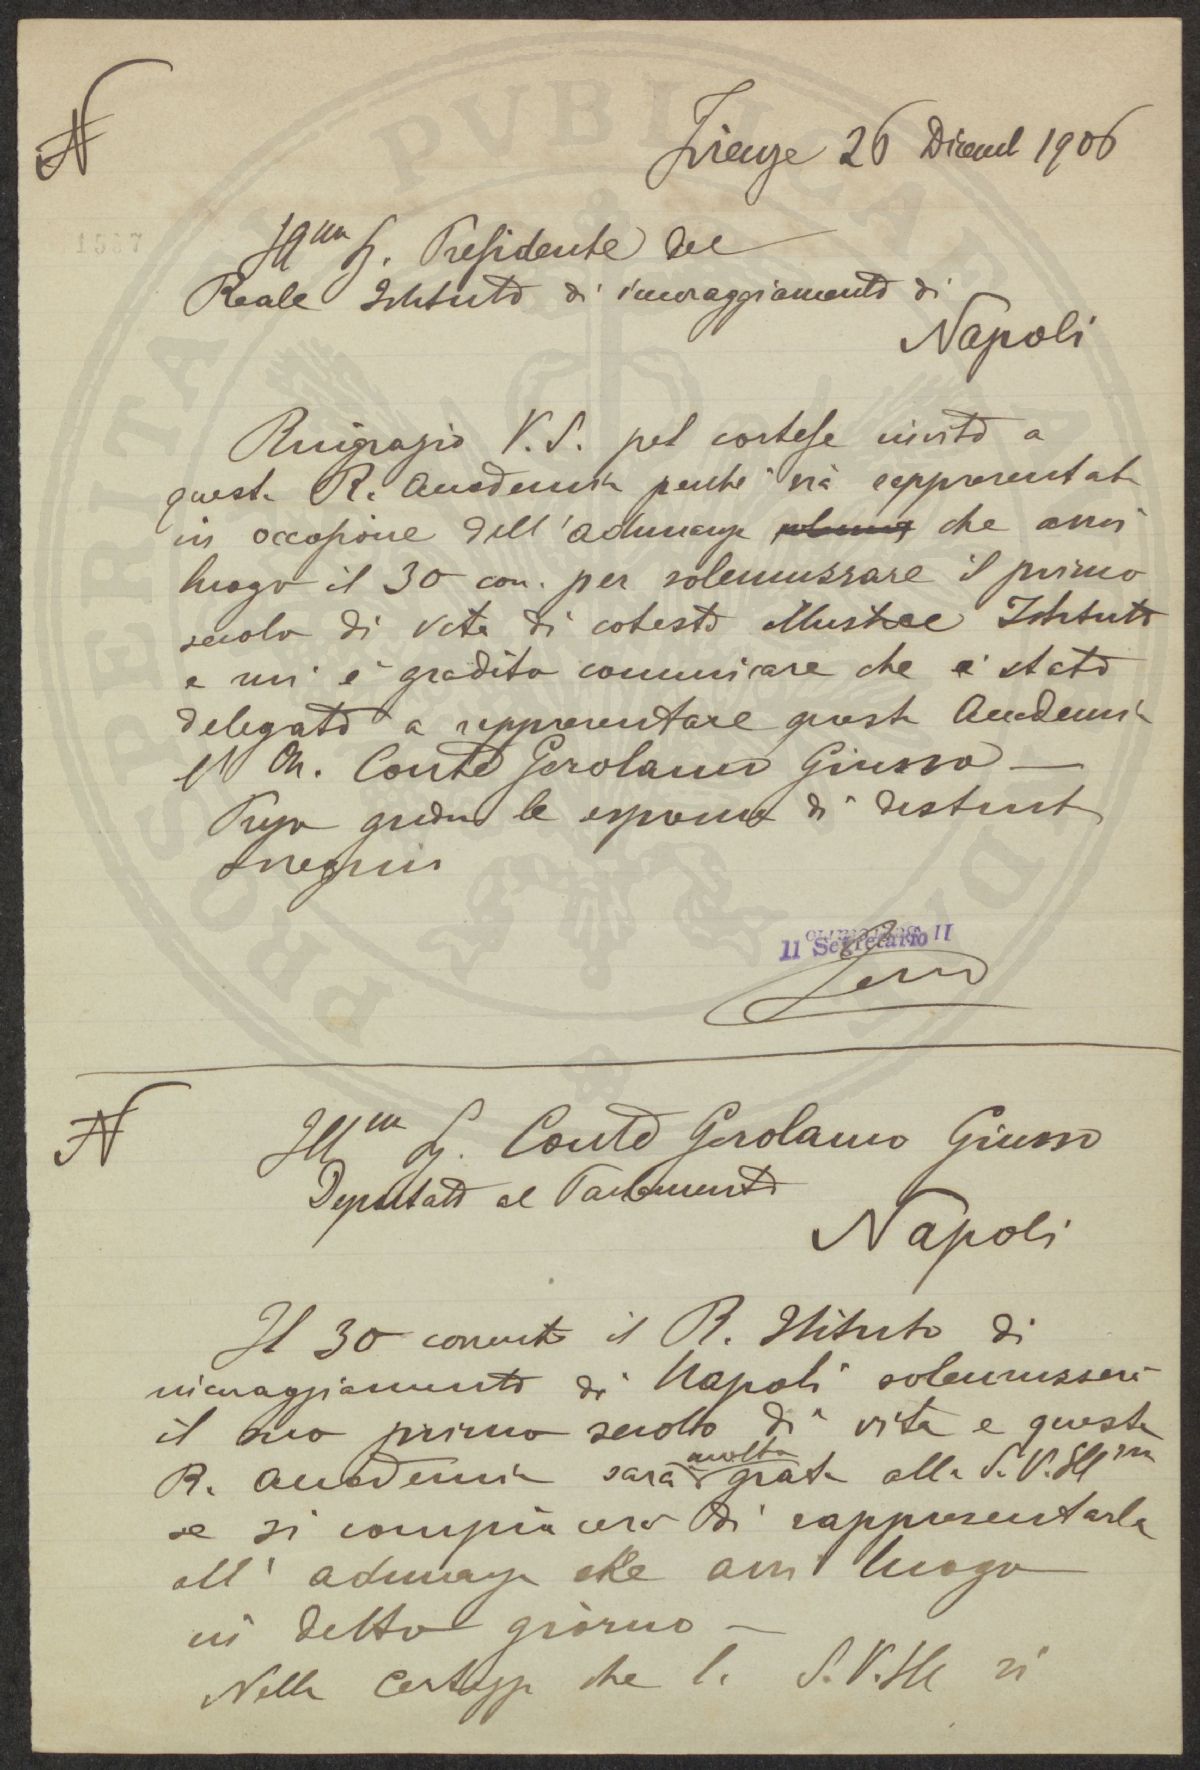 N
Firenze 26 Dicemb 1906
1337
Illmo Sig. Presidente del
Reale Istituto di incoraggiamento di
Napoli
Ringrazio V.S. pel cortese invito a
questa R. Accademia perché sia rappresentata
in occasione dell'adunanza che avrà
luogo il 30 corr. per solennizzare il primo
secolo di vita di cotesto illustre Istituto
e mi è gradito comunicare che è stato
delegato a rappresentare questa Accademia
l'On. Conte Gerolamo Giusso —
Prego gradire le espressioni di distinta
ossequio
Il Segretario
N
Illmo Sig. Conte Gerolamo Giusso
Deputato al Parlamento
Napoli
Il 30 corrente il R. Istituto di
incoraggiamento di Napoli solennizzerà
il suo primo secolo di vita e questa
R. Accademia sarà molto grata alla S.V. Illma
se si compiacerà di rappresentarla
all'adunanza che avrà luogo
in detto giorno —
Nella certezza che la S.V. Ill si
PROSPERITATI PVBLICAE AVGENDAE